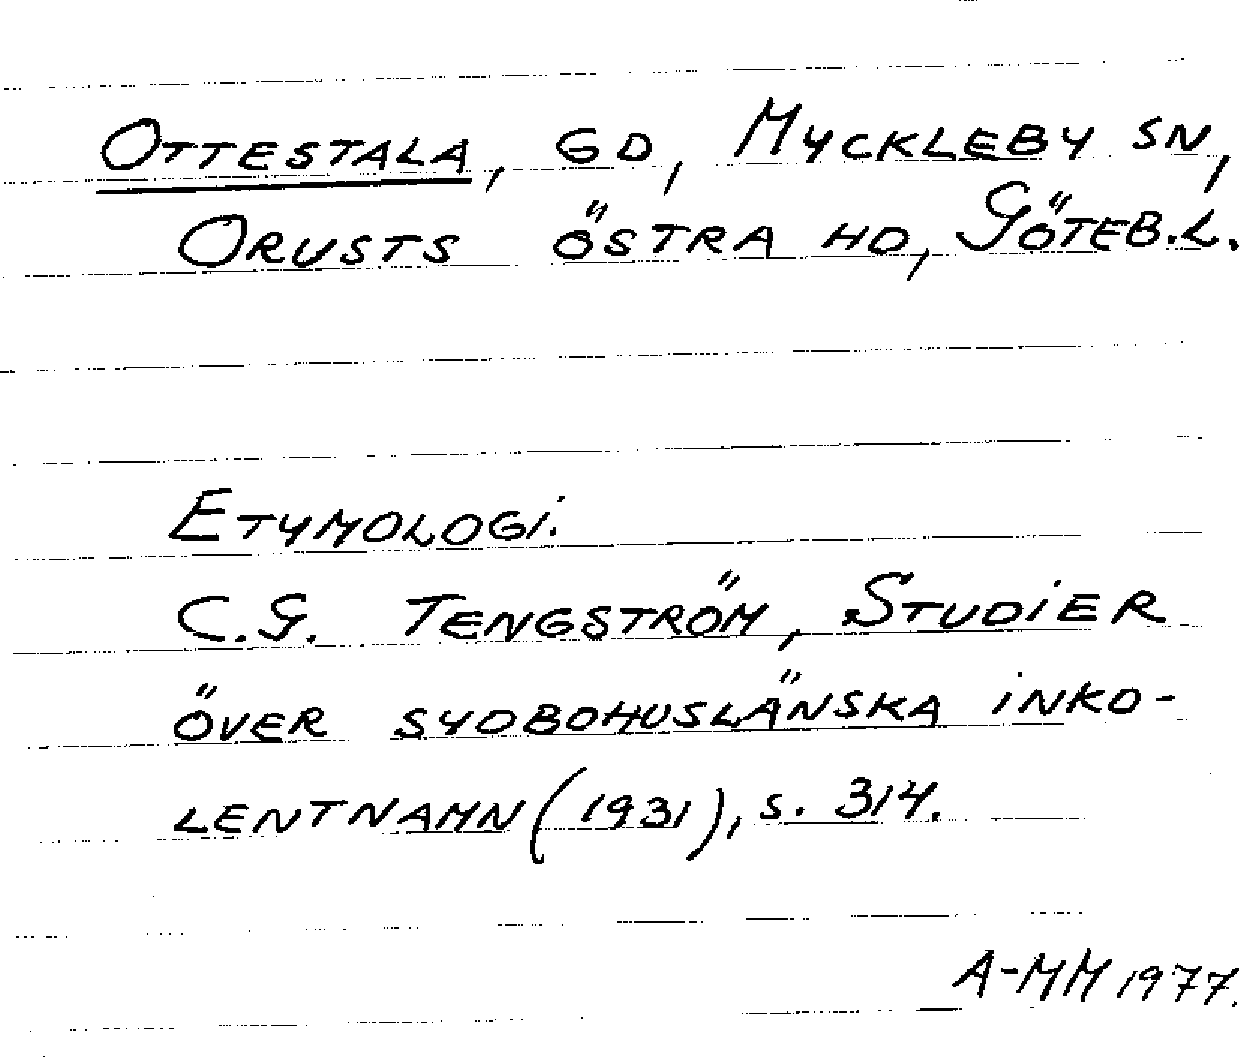 OTTESTALA, GD, MYCKLEBY SN,
ORUSTS ÖSTRA HD, GÖTEB.L.
ETYMOLOGI.
C.G. TENGSTRÖM, STUDIER
ÖVER SYDBOHUSLÄNSKA INKO-
LENTNAMN (1931), S. 314.
A-MM 1977.